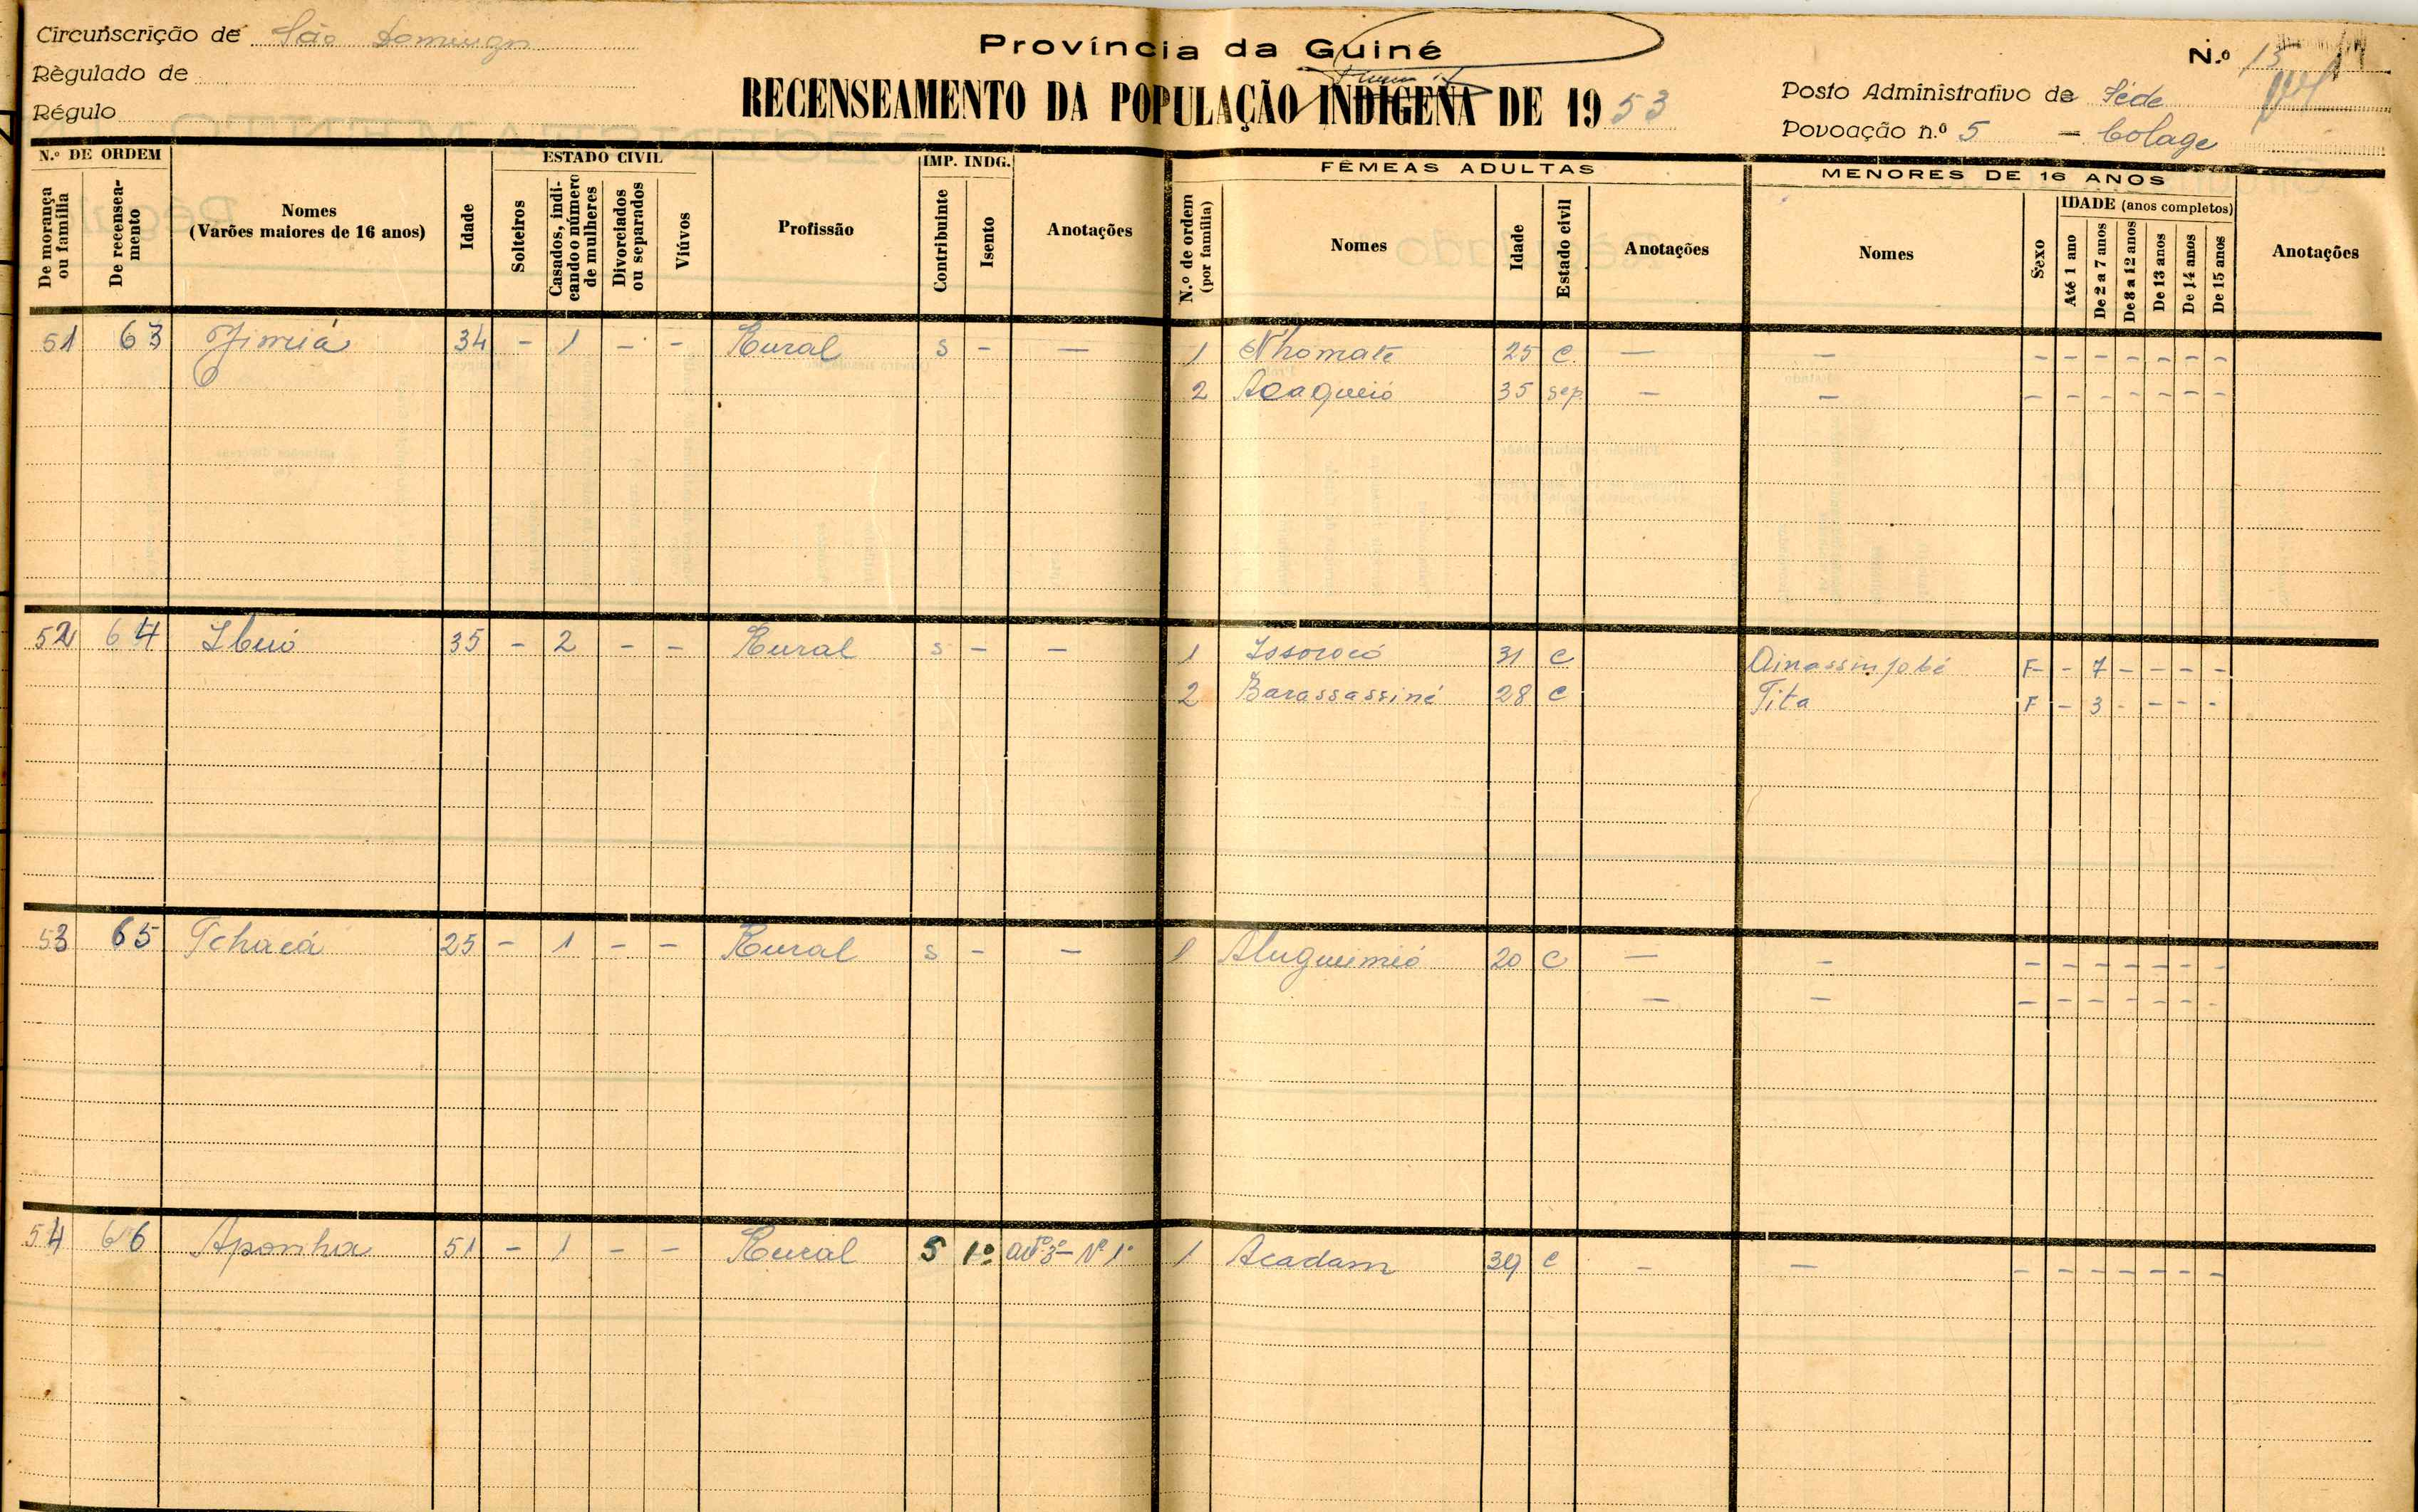 Circunscrição de São Domingos
Regulado de
Régulo
Província da Guiné
RECENSEAMENTO DA POPULAÇÃO INDÍGENA DE 1953
N.º 15
Posto Administrativo de Séde
Povoação n.º 5 — Colage
N.º DE ORDEM ESTADO CIVIL IMP. INDG. FÊMEAS ADULTAS MENORES DE 16 ANOS
De morança ou família De recenseamento Nomes (Varões maiores de 16 anos) Idade Solteiros Casados, indicando o número de mulheres Divorciados ou separados Viúvos Profissão Contribuinte Isento Anotações N.º de ordem (por família) Nomes Idade Estado civil Anotações Nomes Sexo IDADE (anos completos) Até 1 ano De 2 a 7 anos De 8 a 12 anos De 13 anos De 14 anos De 15 anos Anotações
51 63 34 - 1 - - Rural S - — 1 Nhomate 25 C. — — - - - - - - -
2 35 sep — — - - - - - - -
52 64 35 - 2 - - Rural S - — 1 Issorocó 31 C F - - 7 - - - -
2 Barassassiné 28 C Tita F - 3 - - - -
53 65 Tchacá 25 - 1 - - Rural S - — 1 Alugueimió 20 C — - - - - - - - -
— — - - - - - - -
54 66 Aponha 51 - 1 - - Rural S 1º Nº 1º 1 Acadam 39 C - — - - - - - - -